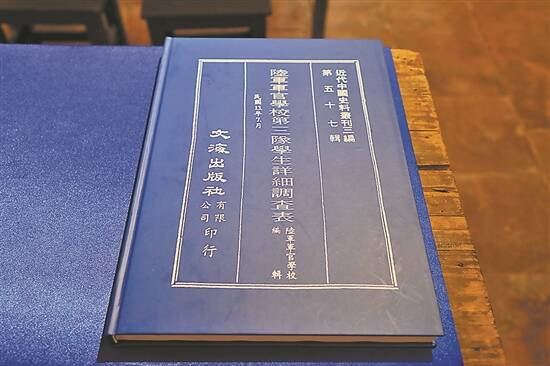 近代中國史料叢刊三編
第五十七輯
陸軍軍官學校第三隊學生詳細調查表
陸軍軍官學校
編輯
民國13年7月
文海出版社
有限
公司
印行